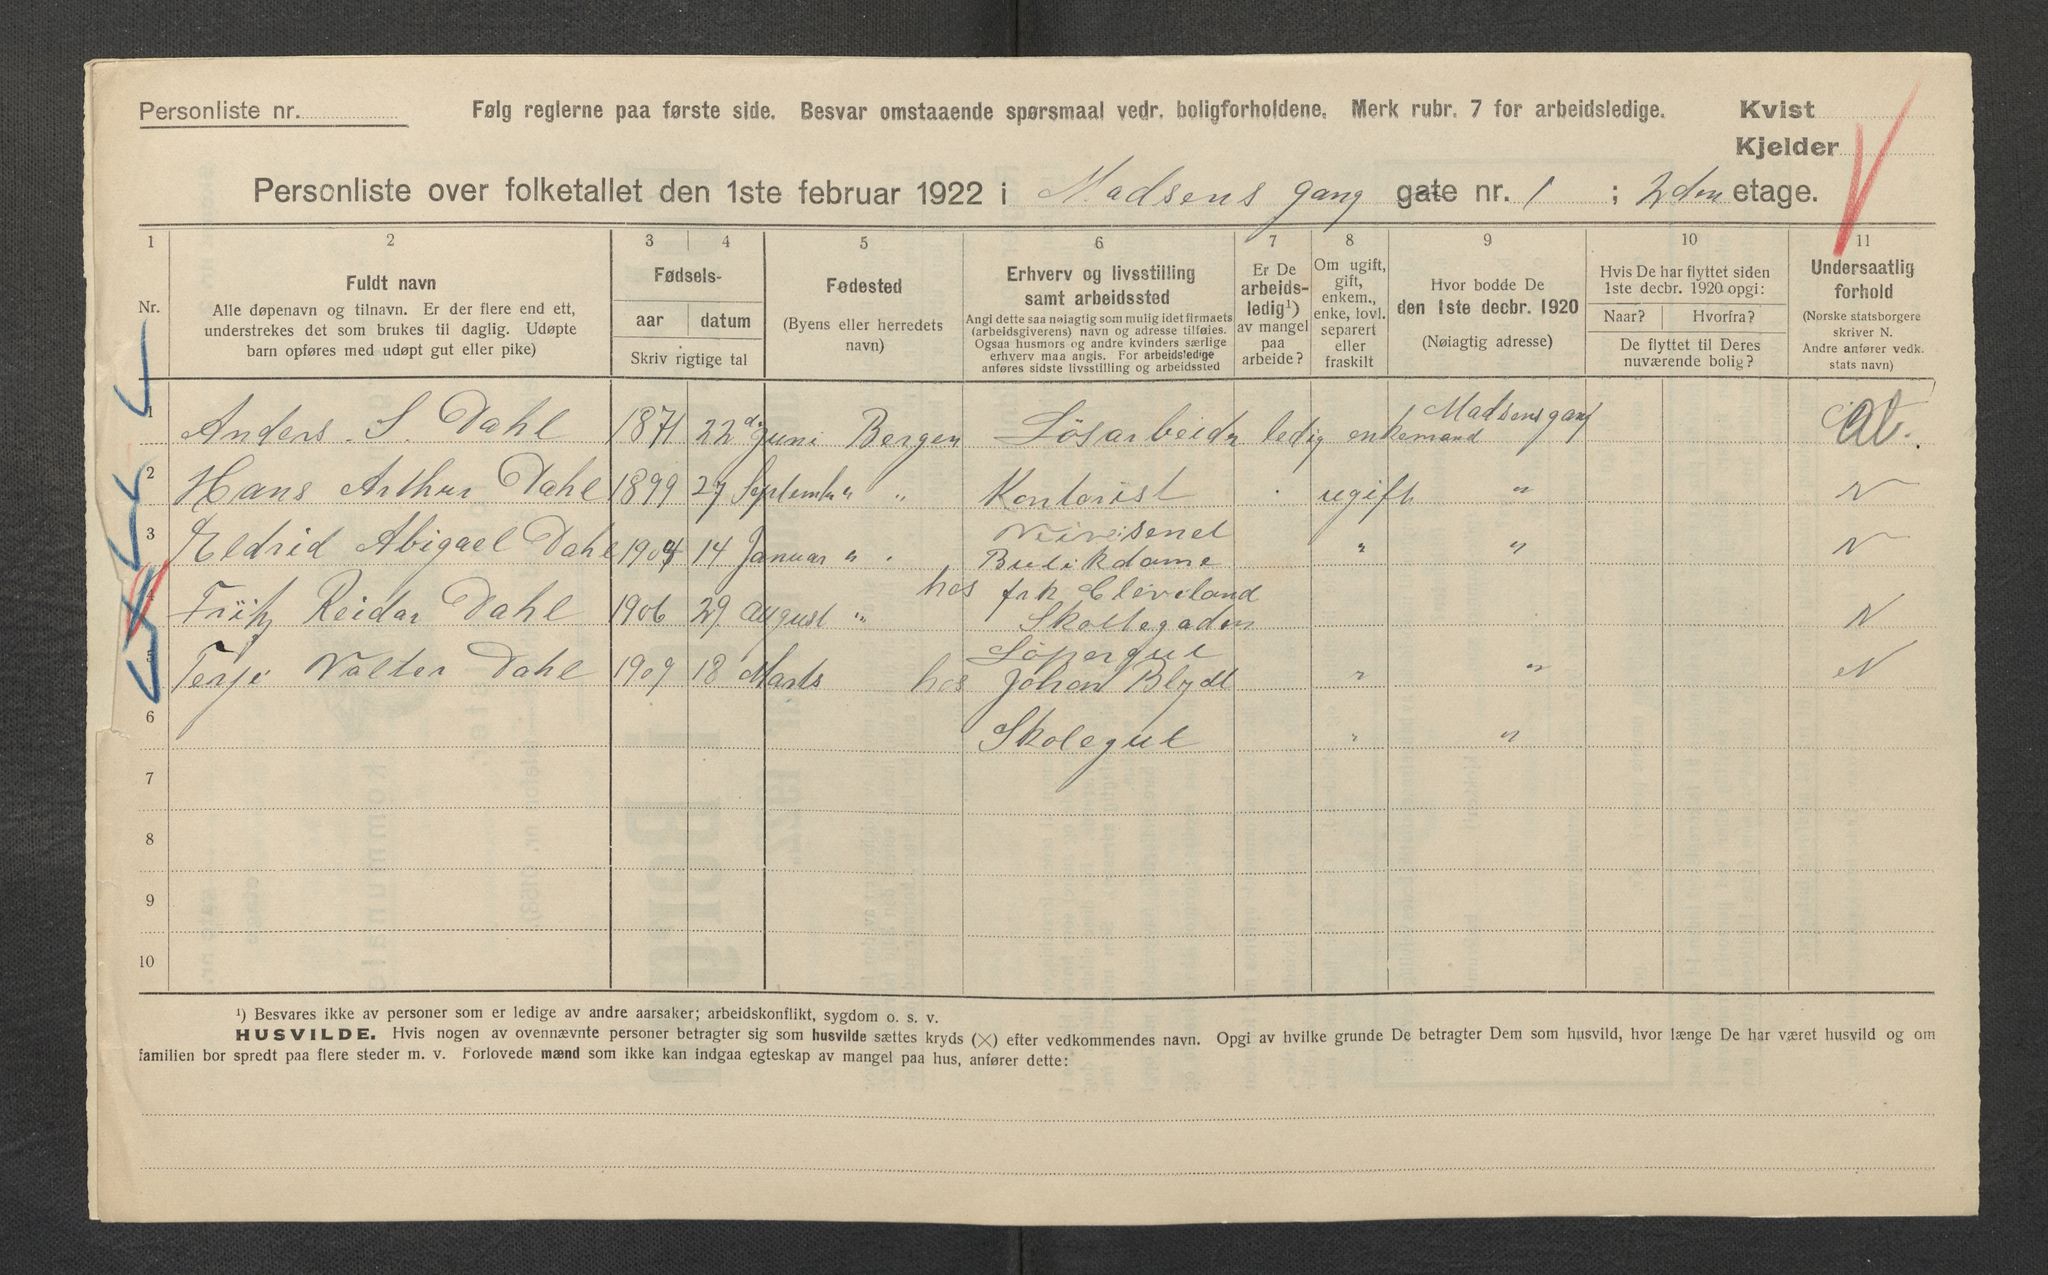 Personliste nr.
Følg reglerne paa første side. Besvar omstaaende spørsmaal vedr. boligforholdene. Merk rubr. 7 for arbeidsledige.
Kvist
Kjelder
Personliste over folketallet den 1ste februar 1922 i Madsens gang gate nr. 1 ; 2den etage.
1 2 3 4 5 6 7 8 9 10 11
Nr.
Fuldt navn
Alle døpenavn og tilnavn. Er der flere end ett,
understrekes det som brukes til daglig. Udøpte
barn opføres med udøpt gut eller pike)
Fødsels-
aar datum
Skriv rigtige tal
Fødested
(Byens eller herredets
navn)
Erhverv og livsstilling
samt arbeidssted
Angi dette saa nøiagtig som mulig idet firmaets
(arbeidsgiverens) navn og adresse tilføies.
Ogsaa husmors og andre kvinders særlige
erhverv maa angis. For arbeidsledige
anføres sidste livsstilling og arbeidssted
Er De
arbeids-
ledig¹)
av mangel
paa
arbeide?
Om ugift,
gift,
enkem.,
enke, lovl.
separert
eller
fraskilt
Hvor bodde De
den 1ste decbr. 1920
(Nøiagtig adresse)
Hvis De har flyttet siden
1ste decbr. 1920 opgi:
Naar? Hvorfra?
De flyttet til Deres
nuværende bolig?
Undersaatlig
forhold
(Norske statsborgere
skriver N.
Andre anfører vedk.
stats navn)
1 Anders S. Dahl 1871 22d Juni Bergen Lösarbeider ledig enkemand Madsens gang
2 Hans Arthur Dahl 1899 27 September " Kontorist ugift " N
3 Eldrid Abigael Dahl 1904 14 Januar " Butikdame " " N
hos frk Cleveland
4 Fritz Reidar Dahl 1906 29 August " Skoltegaden N
Löpergut
5 Terje Valter Dahl 1909 18 Marts hos Johan Blydt " " N
6 Skolegut " "
7
8
9
10
¹) Besvares ikke av personer som er ledige av andre aarsaker; arbeidskonflikt, sygdom o. s. v.
HUSVILDE. Hvis nogen av ovennævnte personer betragter sig som husvilde sættes kryds (×) efter vedkommendes navn. Opgi av hvilke grunde De betragter Dem som husvild, hvor længe De har været husvild og om
familien bor spredt paa flere steder m. v. Forlovede mænd som ikke kan indgaa egteskap av mangel paa hus, anfører dette: